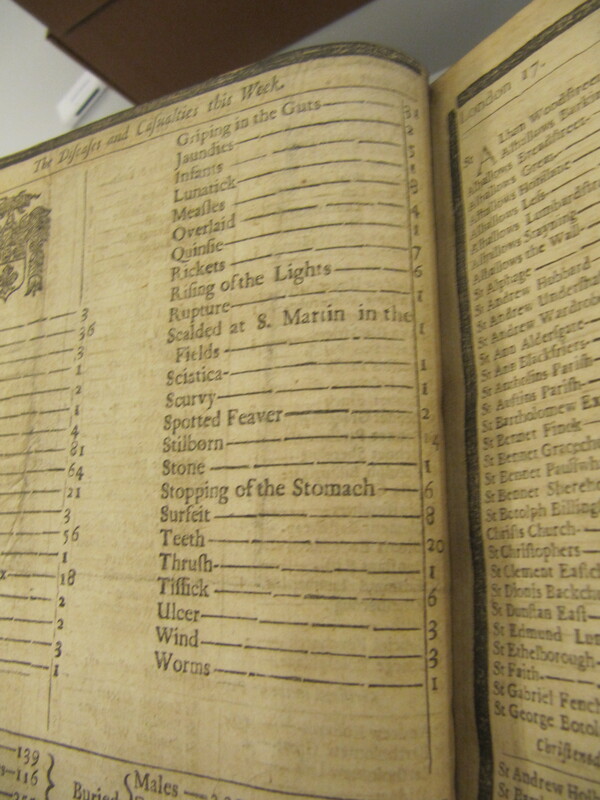 The Diſeaſes and Caſualties this Week.
3
36
3
1
2
1
4
81
64
21
3
56
1
18
2
2
3
1
Griping in the Guts 31
Jaundies 2
Infants 5
Lunatick 1
Meaſles 8
Overlaid 4
Quinſie 1
Rickets 7
Riſing of the Lights 6
Rupture 1
Scalded at S. Martin in the
Fields 1
Sciatica 1
Scurvy 1
Spotted Feaver 2
Stilborn 14
Stone 1
Stopping of the Stomach 6
Surfeit 8
Teeth 20
Thruſh 1
Tiſſick 6
Ulcer 3
Wind 3
Worms 1
139
116
Buried
Males
London 17.
St Alban
Alhallows
Alhallows Breadſtreet
Alhallows Great
Alhallows Honilane
Alhallows Leſs
Alhallows Lumbardſtr
Alhallows Stayning
Alhallows the Wall
St Alphage
St Andrew Hubbard
St Andrew
St Andrew Wardrobe
St Ann Alderſgate
St Ann Blackfriers
St Pariſh
St Auſtins Pariſh
St Bartholomew Ex
St Bennet Finck
St Bennet Gracechu
St Bennet Paulſwh
St Bennet
St Botolph Billing
Chriſts Church
St Chriſtophers
St Clement Eaſtch
St Dionis Backchu
St Dunſtan Eaſt
St Edmund Lum
St Ethelborough
St Faith
St Gabriel Fench
St George Botol
Chriſtened
St Andrew Hol